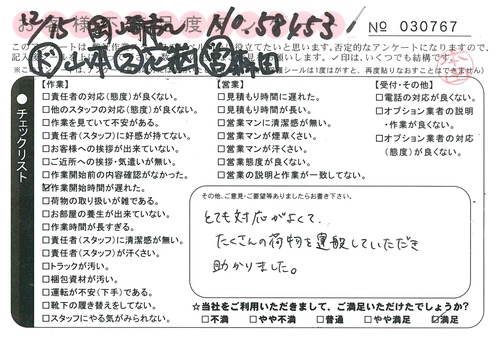 12/15 岡崎市 No.58453
お 様 下 足 度
№ 030767
【作業】
□責任者の対応(態度)が良くない。
□他のスタッフの対応(態度)が良くない。
□作業を見ていて不安がある。
□責任者(スタッフ)に好感が持てない。
□お客様への挨拶が出来ていない。
□ご近所への挨拶・気遣いが無い。
□作業開始前の内容確認がなかった。
☑作業開始時間が遅れた。
□荷物の取り扱いが雑である。
□お部屋の養生が出来ていない。
□作業時間が長すぎる。
□責任者(スタッフ)に清潔感が無い。
□責任者(スタッフ)が汗くさい。
□トラックが汚い。
□梱包資材が汚い。
□運転が不安(下手)である。
□靴下の履き替えをしてない。
□スタッフにやる気がみられない。
【営業】
□見積もり時間に遅れた。
□見積もり時間が長い。
□営業マンに清潔感が無い。
□営業マンが煙草くさい。
□営業マンが汗くさい。
□営業態度が良くない。
□営業の説明と作業が一致してない。
【受付・その他】
□電話の対応が良くない。
□オプション業者の説明
・作業が良くない。
□オプション業者の対応
(態度)が良くない。
チェックリスト
その他、ご意見・ご要望等ありましたらお書き下さい。
とても対応がよくて、
たくさんの荷物を運搬していただき
助かりました。
☆当社をご利用いただきまして、ご満足いただけたでしょうか?
□不満 □やや不満 □普通 □やや満足 ☑満足